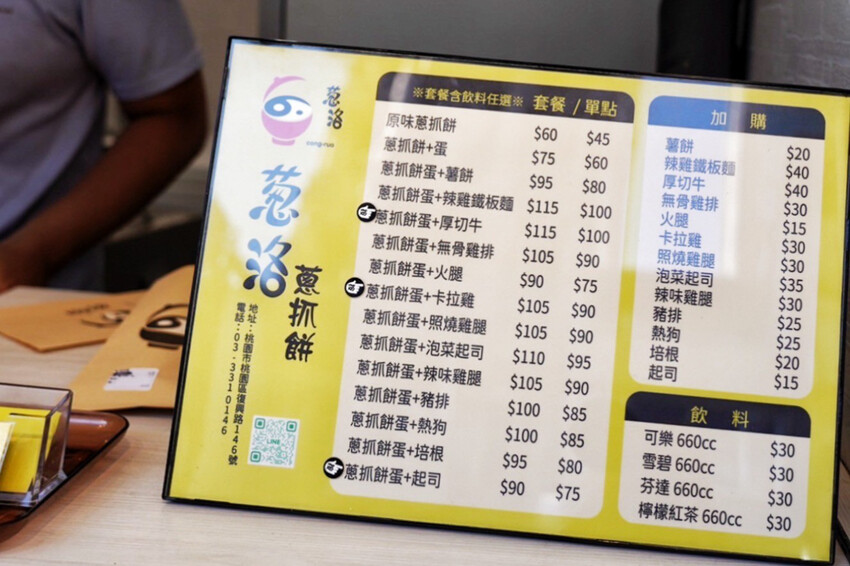 蔥洛
song-ruo
蔥洛
蔥抓餅
地址：桃園市桃園區復興路146號
電話：03-3310146
LINE
※套餐含飲料任選※ 套餐 / 單點
原味蔥抓餅 $60 $45
蔥抓餅+蛋 $75 $60
蔥抓餅蛋+薯餅 $95 $80
蔥抓餅蛋+辣雞鐵板麵 $115 $100
蔥抓餅蛋+厚切牛 $115 $100
蔥抓餅蛋+無骨雞排 $105 $90
蔥抓餅蛋+火腿 $90 $75
蔥抓餅蛋+卡拉雞 $105 $90
蔥抓餅蛋+照燒雞腿 $105 $90
蔥抓餅蛋+泡菜起司 $110 $95
蔥抓餅蛋+辣味雞腿 $105 $90
蔥抓餅蛋+豬排 $100 $85
蔥抓餅蛋+熱狗 $100 $85
蔥抓餅蛋+培根 $95 $80
蔥抓餅蛋+起司 $90 $75
加購
薯餅 $20
辣雞鐵板麵 $40
厚切牛 $40
無骨雞排 $30
火腿 $15
卡拉雞 $30
照燒雞腿 $30
泡菜起司 $35
辣味雞腿 $30
豬排 $25
熱狗 $25
培根 $20
起司 $15
飲料
可樂 660cc $30
雪碧 660cc $30
芬達 660cc $30
檸檬紅茶 660cc $30